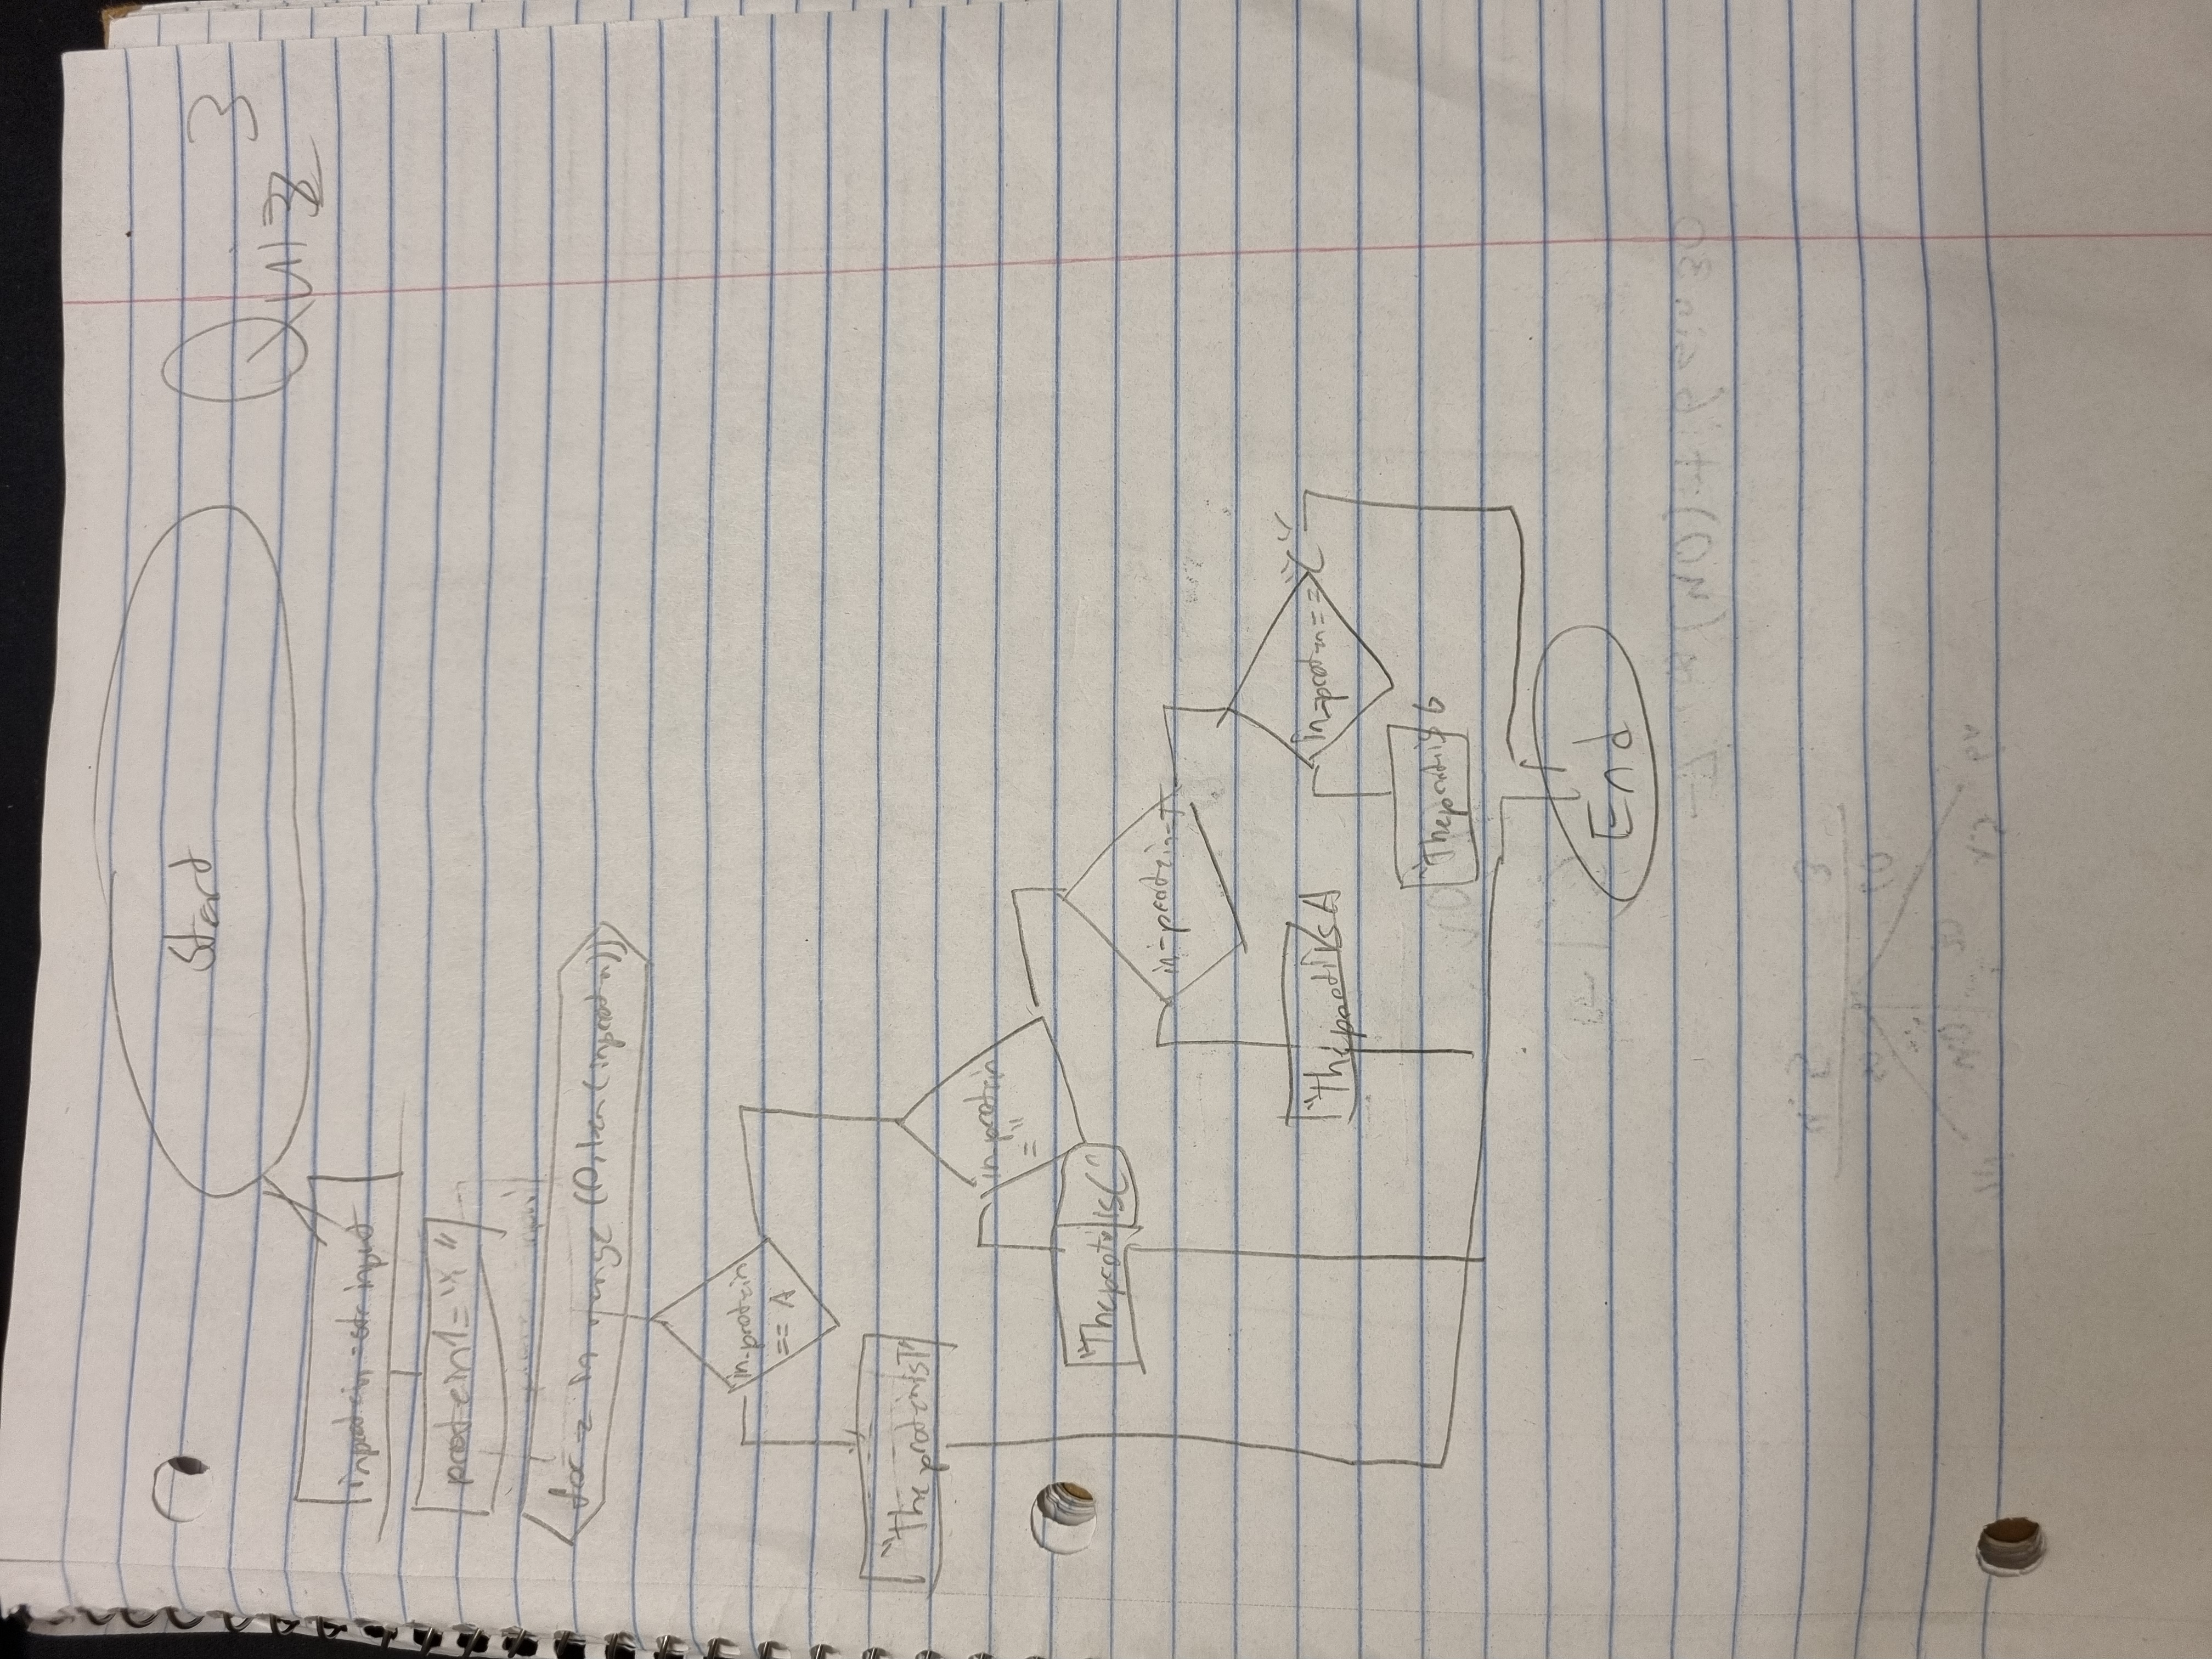 Start
Quiz 3
inprotein = str input
protein1 = " "
for z in range (0, len(inprotein))
in-protein
== A
"The protein is T"
in protein
= "
"The protei is C"
in-protein-T
"The protiis A
in-protein == "C"
"The proteis G
End